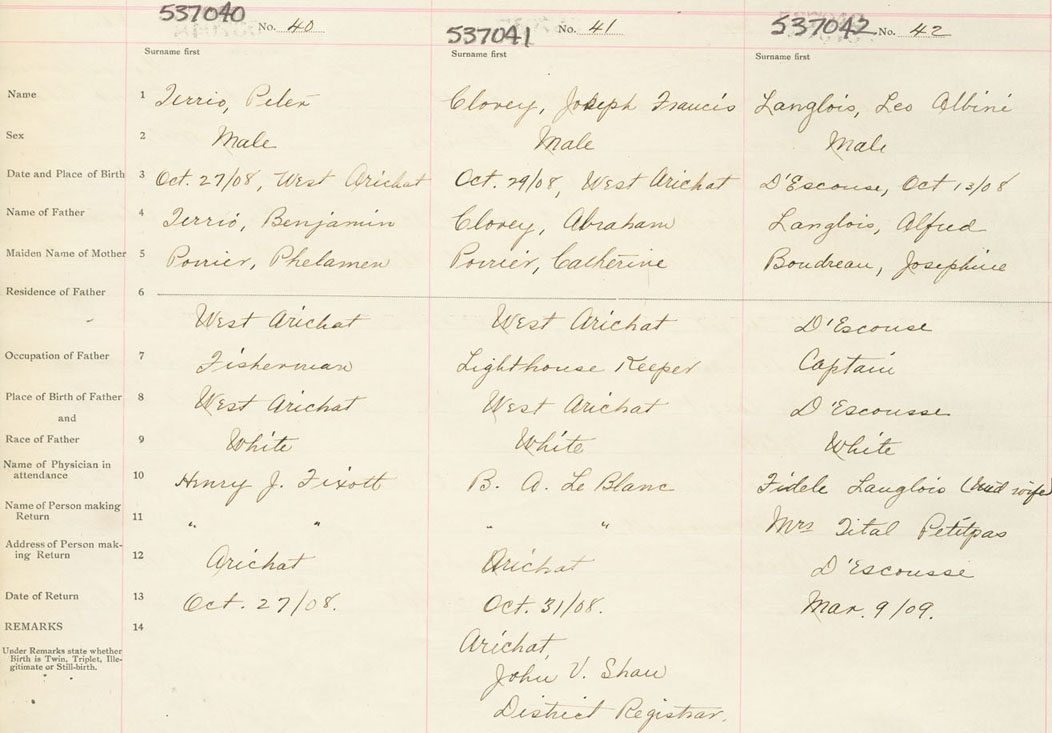 537040 No. 40 537041 No. 41 537042 No. 42
Surname first Surname first Surname first
Name 1 Terrio, Peter Clovey, Joseph Francis Langlois, Leo Albini
Sex 2 Male Male Male
Date and Place of Birth 3 Oct. 27/08, West Arichat Oct. 29/08, West Arichat D'Escouse, Oct 13/08
Name of Father 4 Terrio, Benjamin Clovey, Abraham Langlois, Alfred
Maiden Name of Mother 5 Poirier, Phelamen Poirier, Catherine Boudreau, Josephine
Residence of Father 6
West Arichat West Arichat D'Escouse
Occupation of Father 7 Fisherman Lighthouse Keeper Captain
Place of Birth of Father 8 West Arichat West Arichat D'Escousse
and
Race of Father 9 White White White
Name of Physician in
attendance 10 Henry J. Fixott B. A. Le Blanc Fidele Langlois (Mid wife)
Name of Person making
Return 11 " " " " Mrs Tital Petitpas
Address of Person mak-
ing Return 12 Arichat Arichat D'Escousse
Date of Return 13 Oct. 27/08. Oct. 31/08. Mar. 9/09.
REMARKS 14
Under Remarks state whether
Birth is Twin, Triplet, Ille-
gitimate or Still-birth.
Arichat,
John V. Shaw
District Registrar.